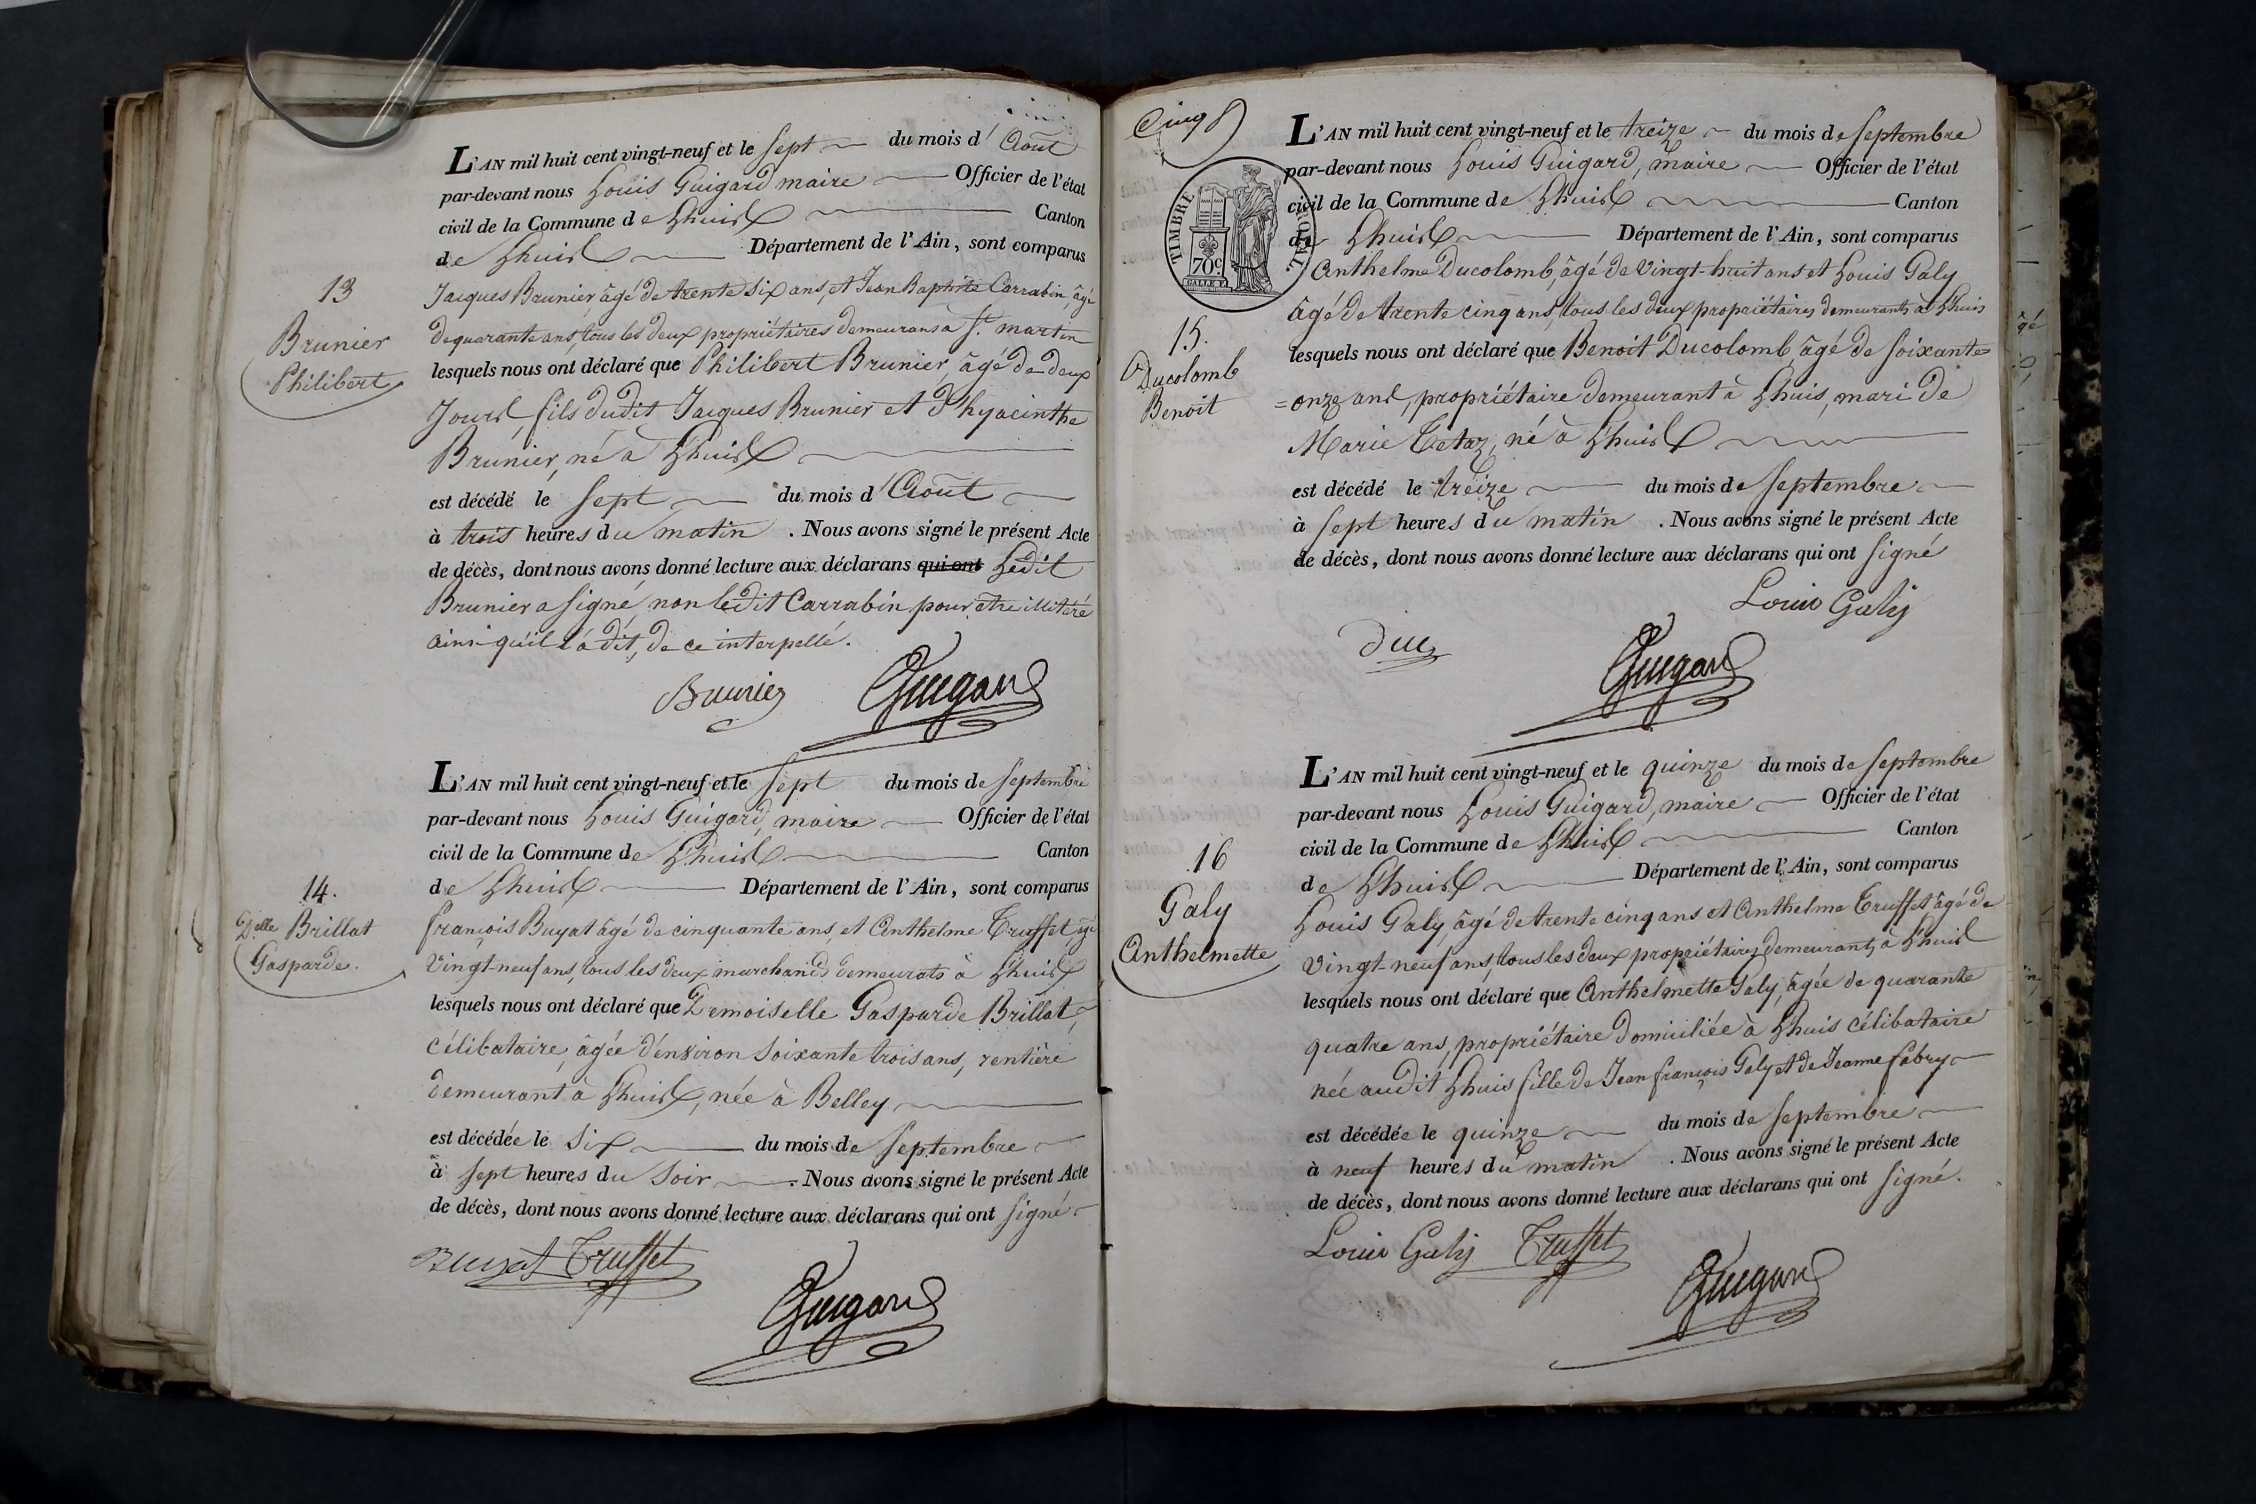 13
Brunier
Philibert
L'AN mil huit cent vingt-neuf et le sept du mois d'Août
par-devant nous Louis Guigard maire Officier de l'état
civil de la Commune de Lhuis Canton
de Lhuis Département de l'Ain, sont comparus
Jacques Brunier, âgé de trente six ans, et Jean Baptiste Carrabin, âgé
de quarante ans, tous les deux propriétaires demeurans à St. martin
lesquels nous ont déclaré que Philibert Brunier, âgé de deux
Jours, fils dudit Jacques Brunier et d'hyacinthe
Brunier, né à Lhuis
est décédé le sept du mois d'Août
à trois heures du matin. Nous avons signé le présent Acte
de décès, dont nous avons donné lecture aux déclarans qui ont Ledit
Brunier a signé non ledit Carrabin pour etre illitéré
ainsi qu'il l'a dit, de ce interpellé.
Brunier Guigard
14.
Delle Brillat
Gasparde.
L'AN mil huit cent vingt-neuf et le sept du mois de septembre
par-devant nous Louis Guigard, maire Officier de l'état
civil de la Commune de Lhuis Canton
de Lhuis Département de l'Ain, sont comparus
françois Buyat âgé de cinquante ans, et Anthelme Truffet âgé
Vingt-neuf ans, tous les deux marchands demeurats à Lhuis
lesquels nous ont déclaré que Demoiselle Gasparde Brillat,
célibataire, âgée d'environ soixante trois ans, rentière
demeurant à Lhuis, née à Belley
est décédée le six du mois de septembre
à sept heures du soir. Nous avons signé le présent Acte
de décès, dont nous avons donné lecture aux déclarans qui ont signé
Buyat Truffet
Guigard
Cinq
TIMBRE ROYAL
70c
15.
Ducolomb
Benoit
L'AN mil huit cent vingt-neuf et le treize du mois de septembre
par-devant nous Louis Guigard, maire Officier de l'état
civil de la Commune de Lhuis Canton
de Lhuis Département de l'Ain, sont comparus
Anthelme Ducolomb, âgé de vingt-huit ans et Louis Galy
âgé de trente cinq ans, tous les deux propriétaires demeurants à Lhuis
lesquels nous ont déclaré que Benoit Ducolomb, âgé de soixante=
=onze ans, propriétaire demeurant à Lhuis, mari de
Marie Tetaz, né à Lhuis
est décédé le treize du mois de septembre
à sept heures du matin. Nous avons signé le présent Acte
de décès, dont nous avons donné lecture aux déclarans qui ont signé
Louis Galy
Duc
Guigard
16
Galy
Anthelmette
L'AN mil huit cent vingt-neuf et le quinze du mois de septembre
par-devant nous Louis Guigard, maire Officier de l'état
civil de la Commune de Lhuis Canton
de Lhuis Département de l'Ain, sont comparus
Louis Galy, âgé de trente cinq ans et Anthelme Truffet âgé de
vingt-neuf ans, tous les deux propriétaires demeurants à Lhuis
lesquels nous ont déclaré que Anthelmette Galy, âgée de quarante
quatre ans, propriétaire domiciliée à Lhuis célibataire
née audit Lhuis fille de Jean françois Galy et de Jeanne fabry
est décédée le quinze du mois de septembre
à neuf heures du matin. Nous avons signé le présent Acte
de décès, dont nous avons donné lecture aux déclarans qui ont signé.
Louis Galy Truffet
Guigard